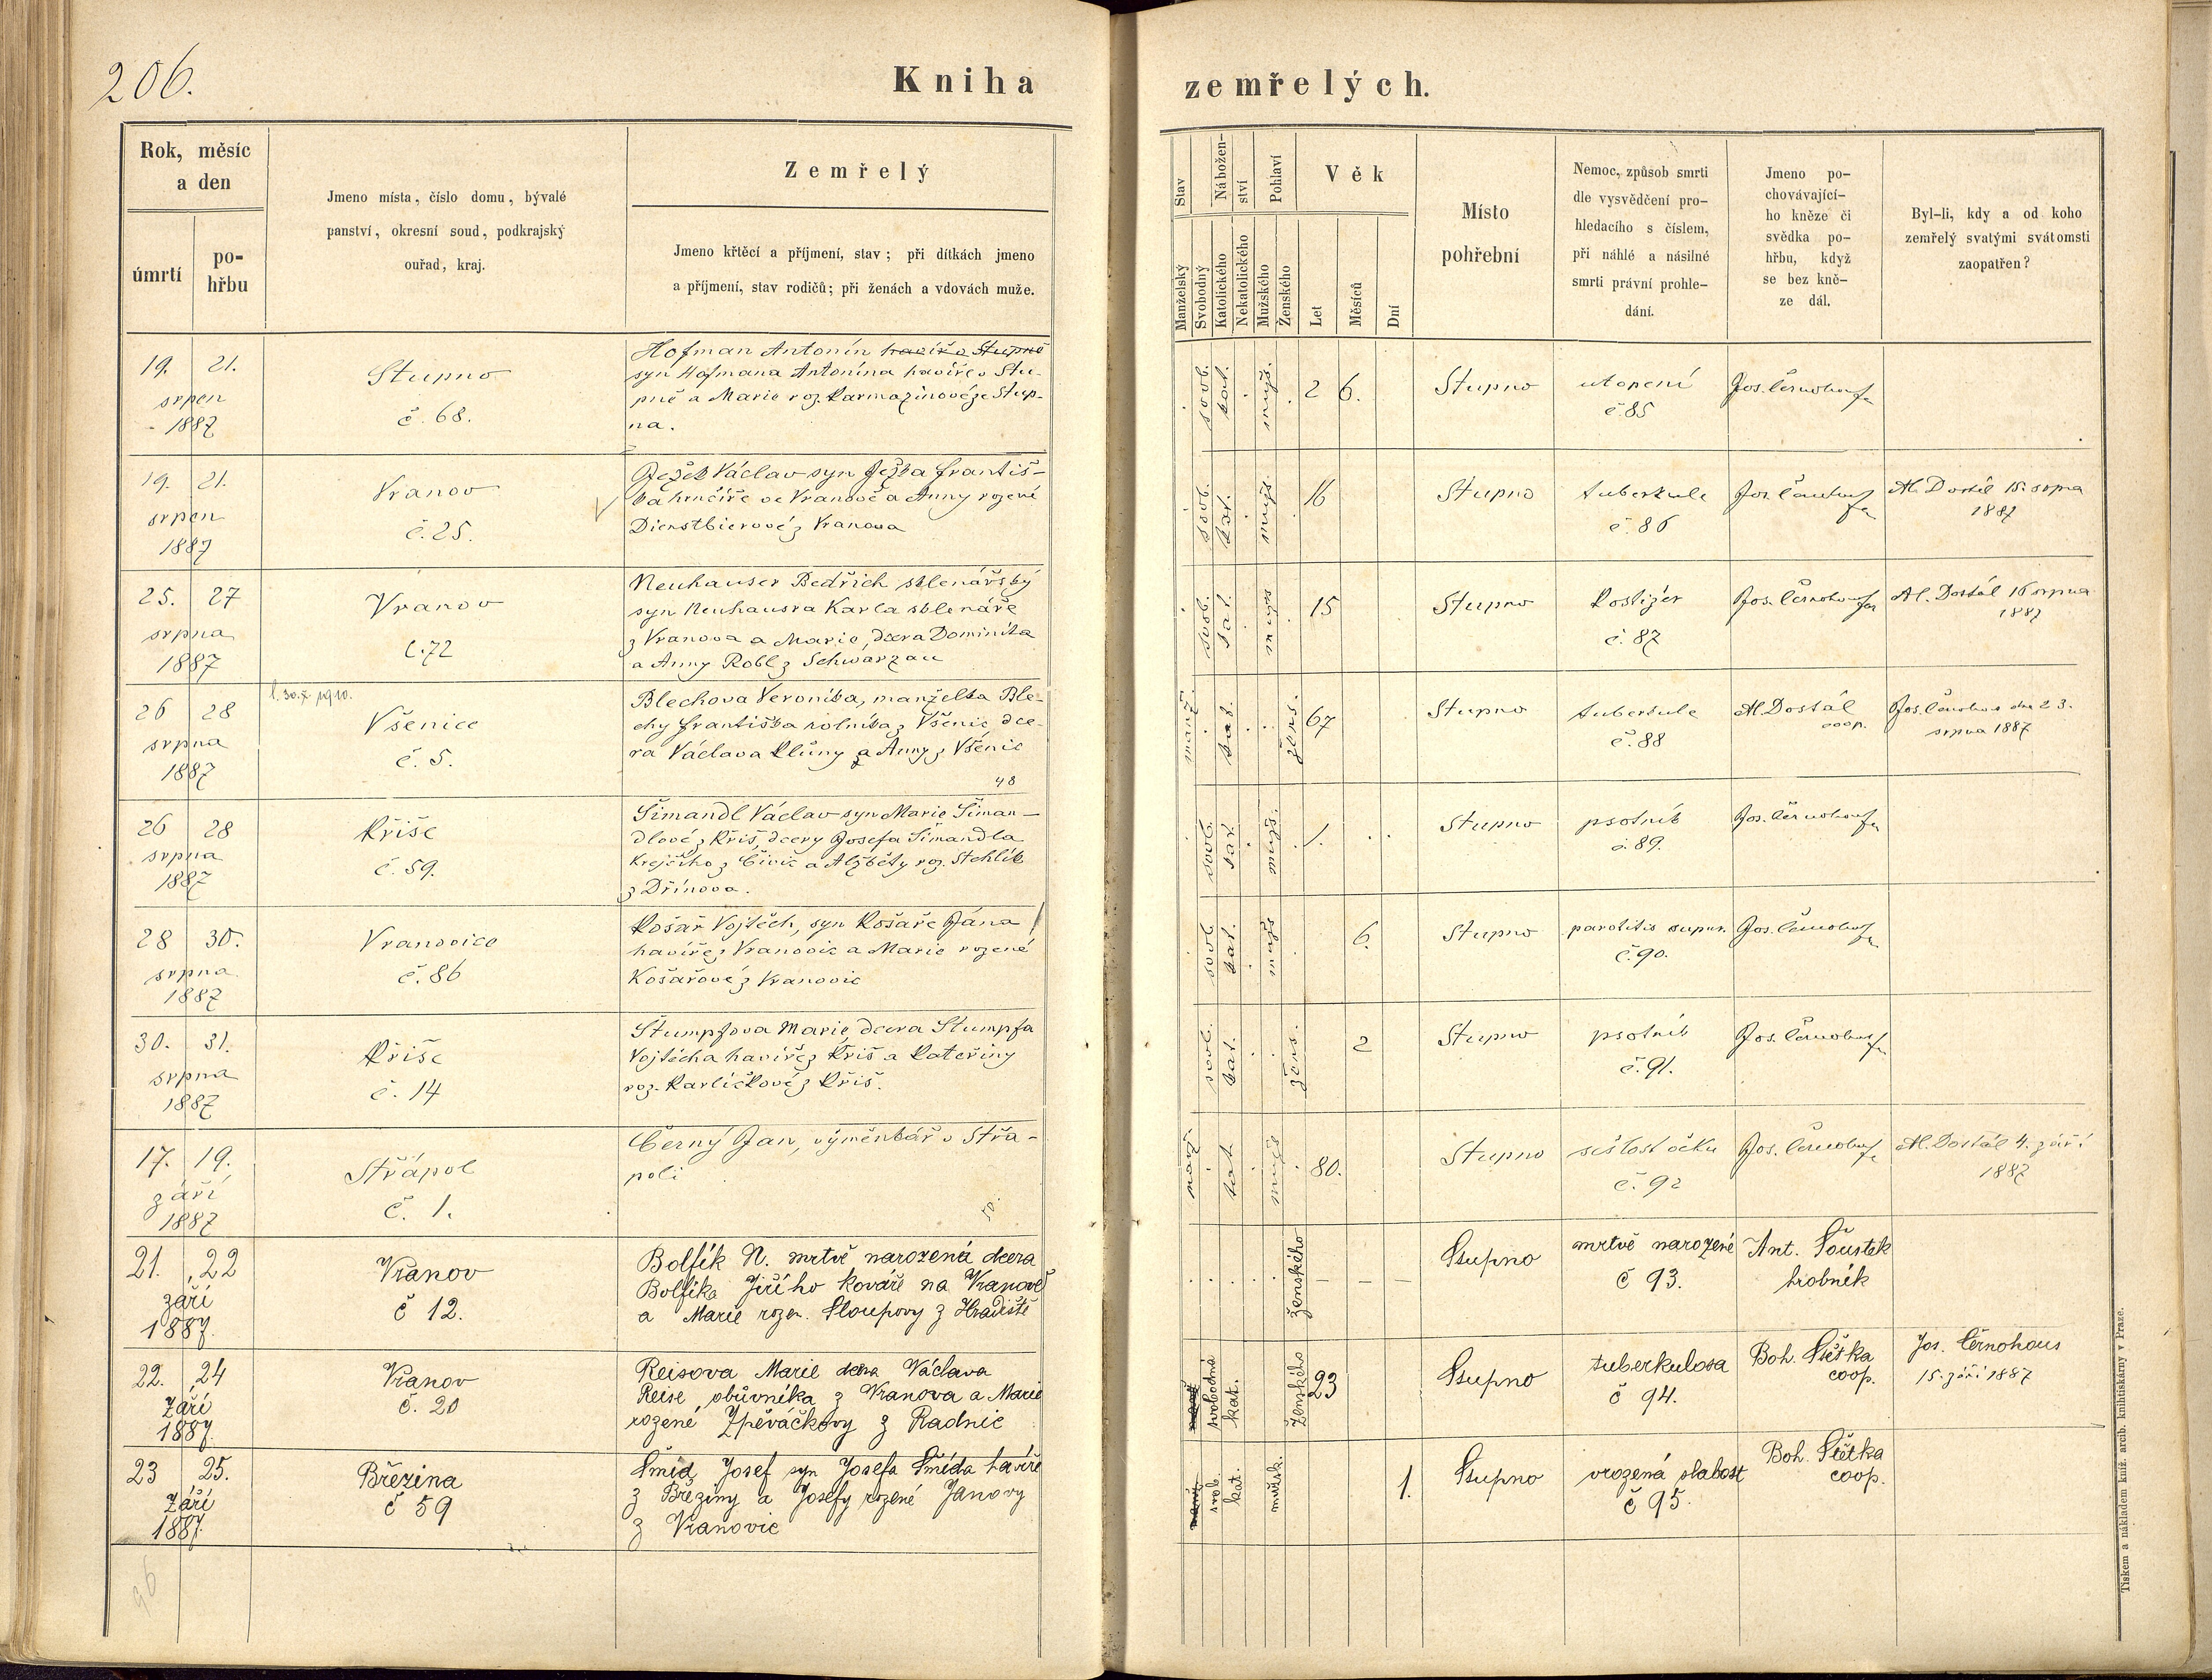 206.
Kniha zemřelých.
Rok, měsíc
a den
úmrtí
po-
hřbu
Jmeno místa, číslo domu, bývalé
panství, okresní soud, podkrajský
ouřad, kraj.
Zemřelý
Jmeno křtěcí a příjmení, stav; při dítkách jmeno
a příjmení, stav rodičů; při ženách a vdovách muže.
Stav
Nábožen-
ství
Pohlaví
Věk
Manželský
Svobodný
Katolického
Nekatolického
Mužského
Ženského
Let
Měsíců
Dní
Místo
pohřební
Nemoc, způsob smrti
dle vysvědčení pro-
hledacího s číslem,
při náhlé a násilné
smrti právní prohle-
dání.
Jmeno po-
chovávající-
ho kněze či
svědka po-
hřbu, když
se bez kně-
ze dál.
Byl-li, kdy a od koho
zemřelý svatými svátomsti
zaopatřen?
19. 21.
srpen
1887
Stupno
č. 68.
Hofman Antonín havíř v Stupně
syn Hofmana Antonína havíře v Stu-
pně a Marie roz. Karmazínové ze Stup-
na.
svob. kat. muž. 2 6.
Stupno
utopení
č. 85
Jos. Černohous
19. 21.
srpen
1887
Vranov
č. 25.
Ježek Václav syn Ježka Františ-
ka hrnčíře ve Vranově a Anny rozené
Dienstbierové z Vranova
svob. kat. muž. 16
Stupno
tuberkule
č. 86
Jos. Černohous
Al. Dostál 15. srpna
1887
25. 27
srpna
1887
Vranov
č. 72
Neuhauser Bedřich sklenářský
syn Neuhausra Karla sklenáře
z Vranova a Marie, dcera Dominika
a Anny Robl z Schwarzau
svob. kat. muž. 15
Stupno
Kostižer
č. 87
Jos. Černohous
Al. Dostál 16 srpna
1887
26 28
srpna
1887
l. 30. X 1910.
Všenice
č. 5.
Blechova Veronika, manželka Ble-
chy Františka rolníka z Všenic, dce-
ra Václava Kluny a Anny z Všenic
48
manž. kat. žens. 67
Stupno
tuberkule
č. 88
Al. Dostál
coop.
Jos. Černohous dne 23.
srpna 1887
26 28
srpna
1887
Kříše
č. 59.
Šimandl Václav syn Marie Šiman-
dlové z Kříš, dcery Josefa Šimandla
Krejčího z Čivic a Alžběty roz. Stehlík
z Dřínova.
svob. kat. muž. 1.
Stupno
psotník
č. 89.
Jos. Černohous
28 30.
srpna
1887
Vranovice
č. 86
Košař Vojtěch, syn Košaře Jána
havíře z Vranovic a Marie rozené
Košařové z Vranovic
svob. kat. muž. 6.
Stupno
parotitis supur.
č. 90.
Jos. Černohous
30. 31.
srpna
1887
Kříše
č. 14
Štumpfova Marie, dcera Stumpfa
Vojtěcha havíře z Kříš a Kateřiny
roz. Karlíčkové z Kříš.
svob. kat. žens. 2
Stupno
psotník
č. 91.
Jos. Černohous
17. 19.
září
1887
Střápol
č. 1.
Černý Jan, výměnkář v Střa-
poli
50.
manž. kat. muž. 80.
Stupno
sešlost věku
č. 92
Jos. Černohous
Al. Dostál 4. září
1887
21. 22
září
1887.
Vranov
č 12.
Bolfík N. mrtvě narozená dcera
Bolfíka Jiřího kováře na Vranově
a Marie rozen. Sloupovy z Hradiště
ženského – – –
Stupno
mrtvě narozené
č 93.
Ant. Šoustek
hrobník
22. 24
Září
1887.
Vranov
č. 20
Reisova Marie dcera Václava
Reise obůvníka z Vranova a Marie
rozené Zpěváčkovy z Radnic
svobodná kat. Ženského 23
Stupno
tuberkulosa
č 94.
Boh. Štětka
coop.
Jos. Černohous
15. září 1887
23 25.
Září
1887.
Březina
č 59
Šmíd Josef syn Josefa Šmída havíře
z Březiny a Josefy rozené Janovy
z Vranovic
svob. kat. mužsk. 1.
Stupno
vrozená slabost
č 95.
Boh. Štětka
coop.
96
Tiskem a nákladem kníž. arcib. knihtiskárny v Praze.